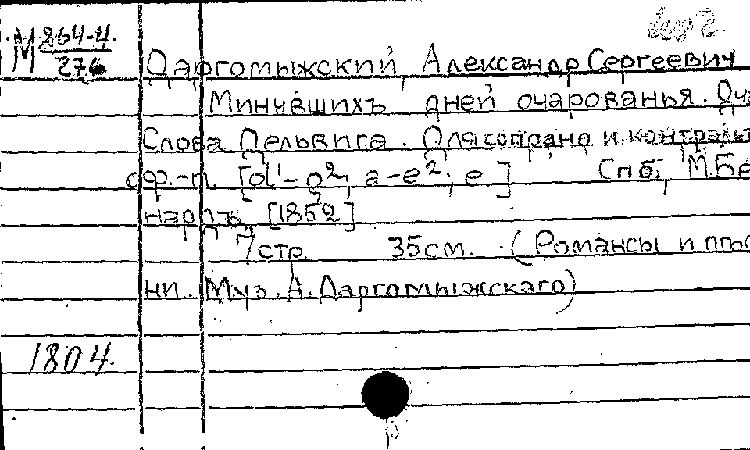 М 864-4
276
Даргомыжский, Александр Сергеевич
Минувшихъ дней очарованья. Ду
Слова Дельвига. Для сопрано и контраль
с ф.-п. [d'-g²; a-e²; e] Спб., М. Бе
нардъ [1852]
7 стр. 35 см. (Романсы и пѣс
ни. Муз. А. Даргомыжскаго)
1804.